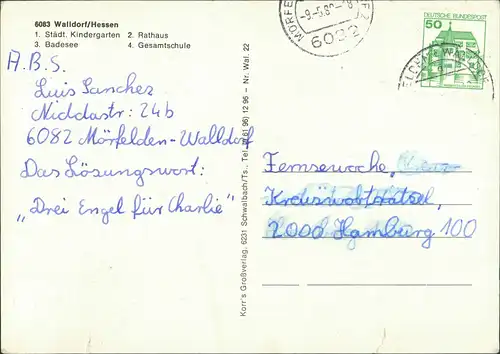 6083 Walldorf/Hessen
1. Städt. Kindergarten 2. Rathaus
3. Badesee 4. Gesamtschule
A.B.S.
Luis Sanchez
Niddastr: 24b
6082 Mörfelden-Walldorf
Das Lösungswort:
„Drei Engel für Charlie"
Korr's Großverlag, 6231 Schwalbach/Ts., Tel. (0 61 96) 12 96 – Nr. Wal. 22
-9.-5.80
6082
DEUTSCHE BUNDESPOST
50
Fernsewoche,
Kreuswobträtsel,
2000 Hamburg 100